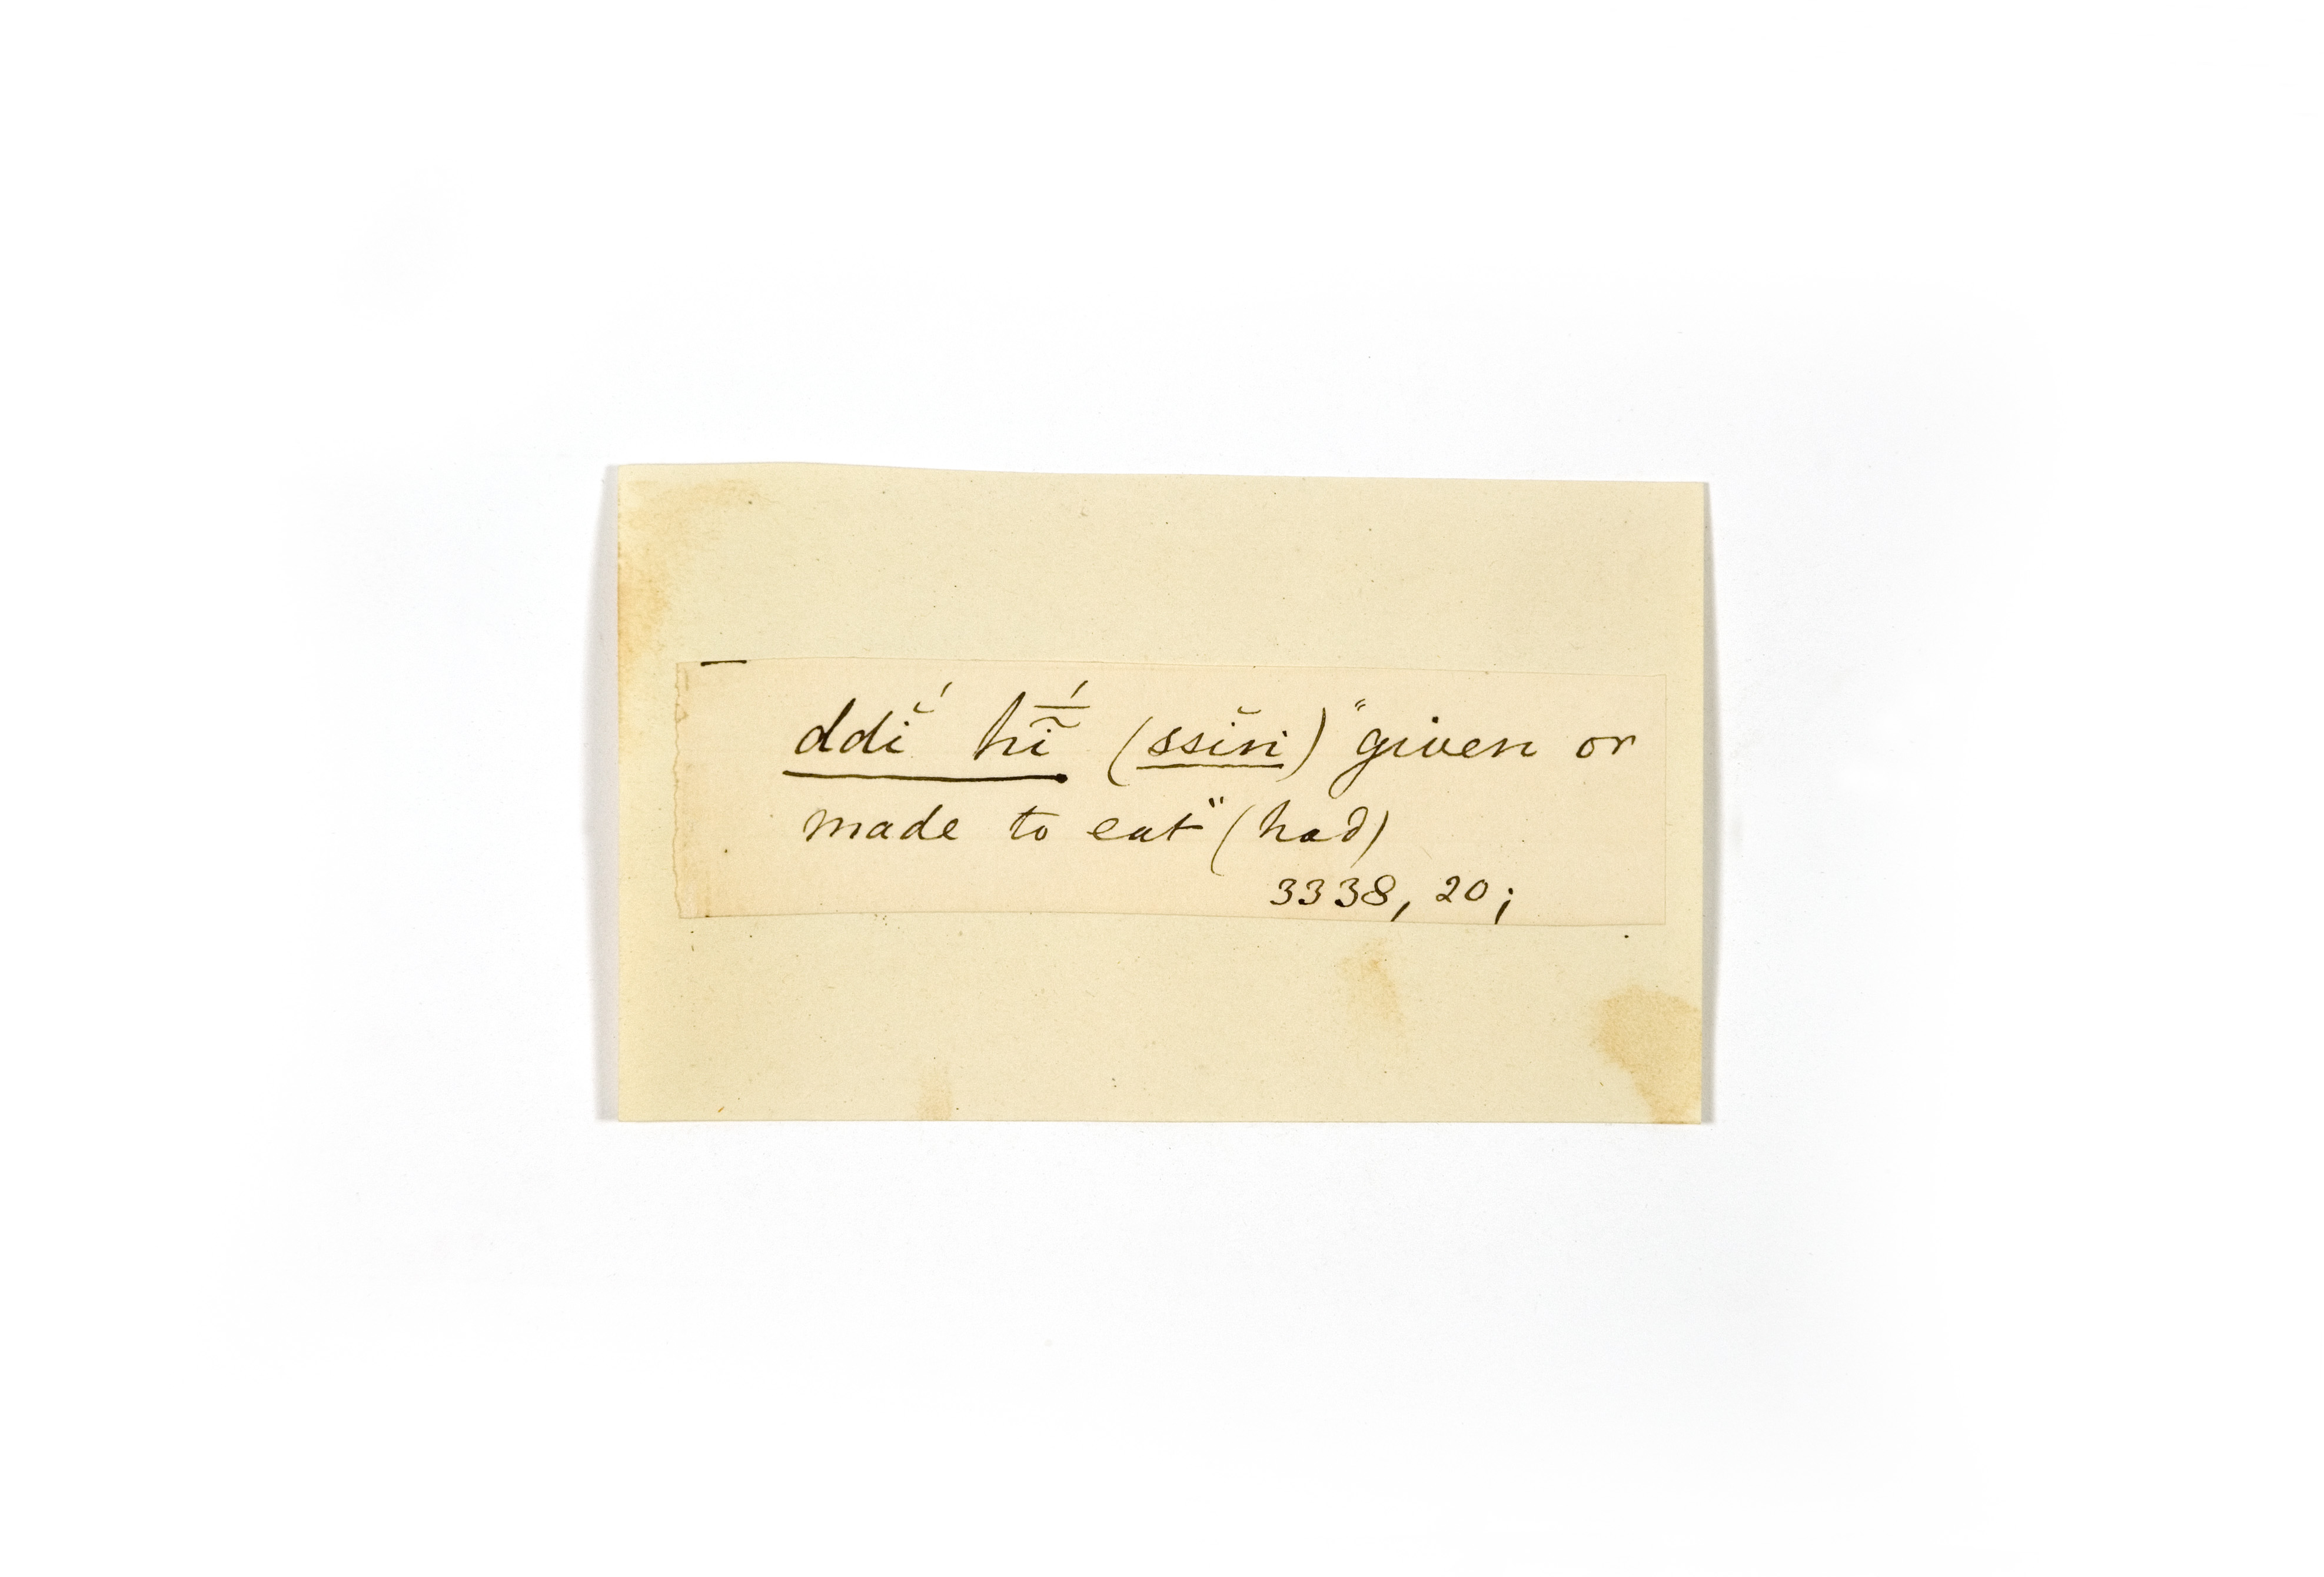 ddĭ́ hī̃́ (ssĭri) "given or
made to eat" (had)
3338, 20;